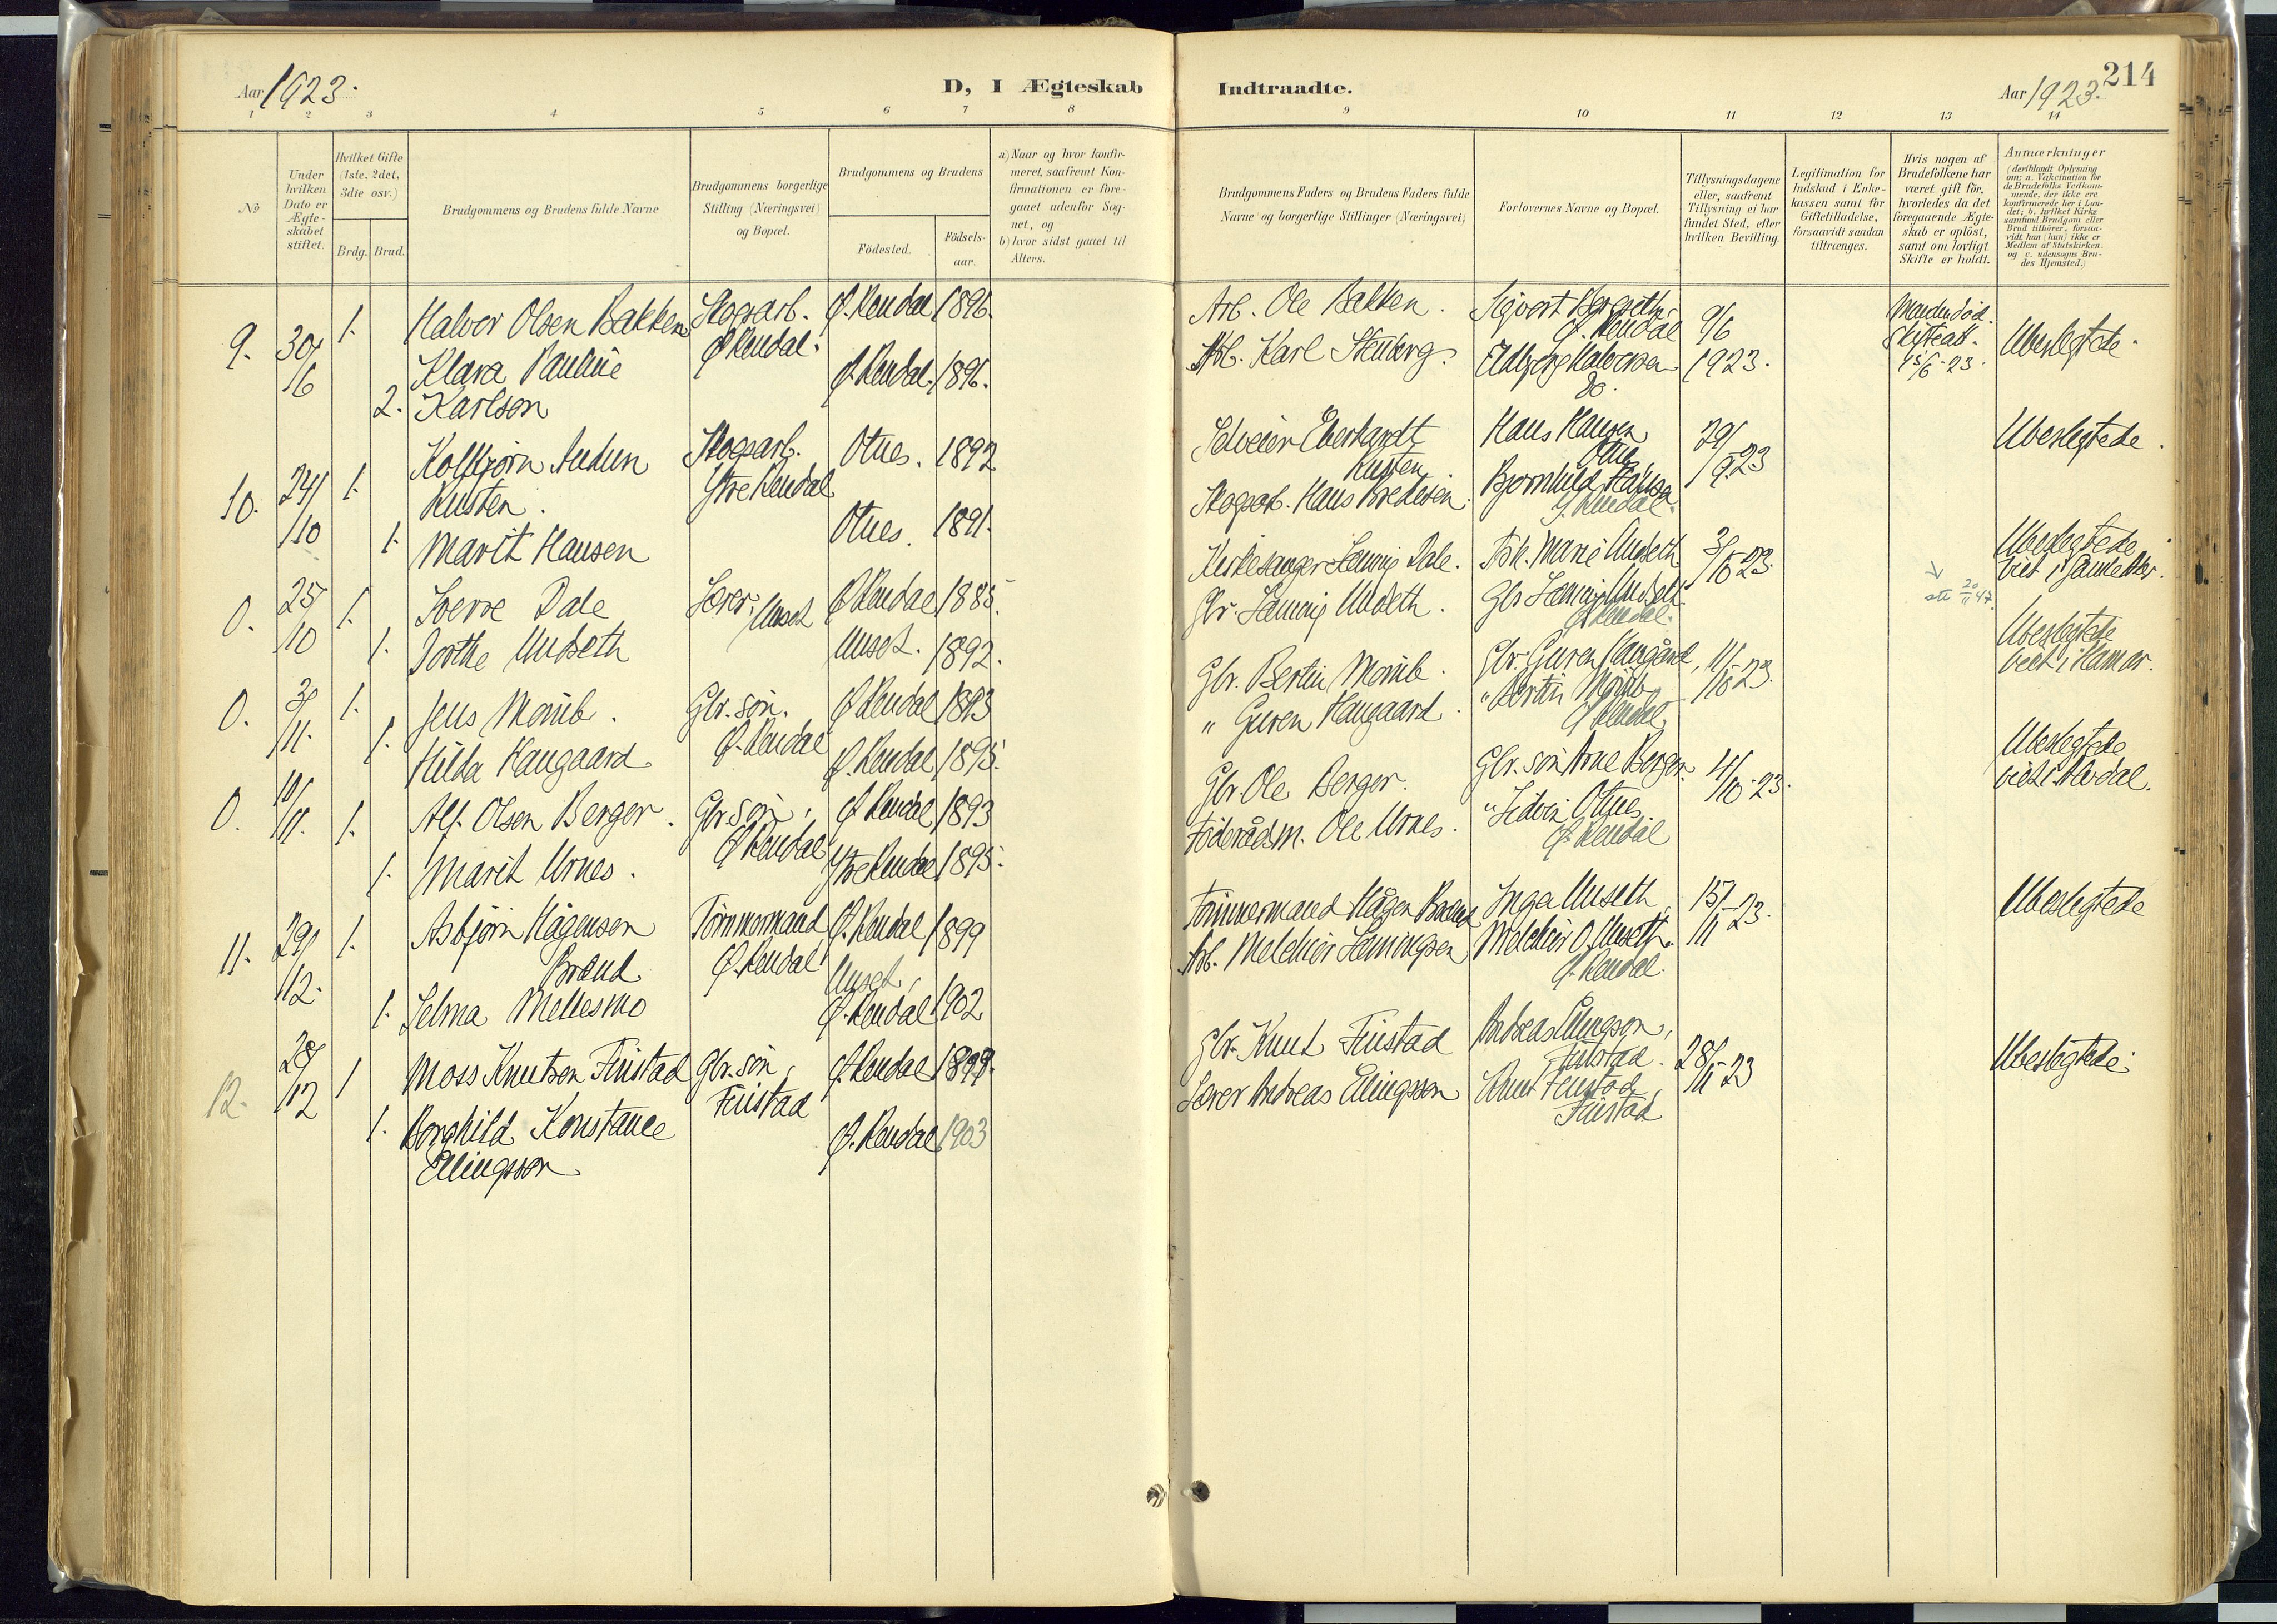 Aar 1923.
D, I Ægteskab
1 2 3 4 5 6 7 8
№
Under hvilken Dato er Ægteskabet stiftet.
Hvilket Gifte (1ste, 2det, 3die osv.)
Brdg. Brud.
Brudgommens og Brudens fulde Navne
Brudgommens borgerlige Stilling (Næringsvei) og Bopæl.
Brudgommens og Brudens
Födested. Födselsaar.
a) Naar og hvor konfirmeret, saafremt Konfirmationen er foregaaet udenfor Sognet, og
b) hvor sidst gaaet til Alters.
9. 30/6 1. Halvor Olsen Bakken Skogsarb. Ø. Rendal 1896.
Ø Rendal.
Klara Pauline Ø. Rendal. 1896.
2. Karlsen
10. 24/10 1. Kolbjørn Audun Skogsarb. Otnes. 1892
Kusten. Ytre Rendal
1. Marit Hansen Otnes. 1891.
0. 25/10 1. Sverre Dale Lærer, Unset Ø Rendal 1885
1. Dorthe Undseth Unset. 1892.
0. 3/11. 1. Jens Momb. Gbr. søn. Ø Rendal 1893
Ø. Rendal
1. Hilda Haugaard Ø. Rendal 1895.
0. 10/11. 1. Alf. Olsen Berger. Gbr søn, Ø Rendal 1893
Ø Rendal
1. Marit Urnes. Ytre Rendal 1895.
11. 29/12. 1. Asbjørn Hågensen Tømmermand Ø. Rendal 1899
Brænd Ø. Rendal
Unset,
1. Selma Mellesmo Ø. Rendal 1902
12. 28/12 1 Moss Knutsen Finstad Gbr. søn, Ø. Rendal 1899.
Finstad
1. Borghild Konstance Ø. Rendal 1903
Ellingsson
Indtraadte.
Aar 1923. 214
9 10 11 12 13 14
Brudgommens Faders og Brudens Faders fulde Navne og borgerlige Stillinger (Næringsvei)
Forlovernes Navne og Bopæl.
Tillysningsdagene eller, saafremt Tillysning ei har fundet Sted, efter hvilken Bevilling.
Legitimation for Indskud i Enkekassen samt for Giftetilladelse, forsaavidt saadan tiltrænges.
Hvis nogen af Brudefolkene har været gift för, hvorledes da det foregaaende Ægteskab er oplöst, samt om lovligt Skifte er holdt.
Anmærkninger (deriblandt Oplysning om: a. Vakcination for de Brudefolks Vedkommende, der ikke ere konfirmerede her i Landet; b. hvilket Kirkesamfund Brudgom eller Brud tilhörer, forsaavidt han (hun) ikke er Medlem af Statskirken, og c. udensogns Brudes Hjemsted.)
Arb. Ole Bakken. Sigvart Bergseth, 9/6 Manden död.
Ø. Rendal Skifteatt. Ubeslegtede.
Arb. Karl Stenberg. Edbjørg Halvorsen 1923. 15/6-23.
Do.
Selveier Eberhardt Hans Hansen 29/9-23 Ubeslegtede.
Kusten Otnes
Skogsarb. Hans Bredesen. Bjørnhild Hansen
Y. Rendal.
Kirkesanger Heming Dale. Frk. Marie Undseth 3/10 23. Ubeslegtede
viet i
Gbr. Heming Undseth. Gbr Heming Undseth 20/11 47.
Ø Rendal.
Gbr. Bertin Momb. Gbr. Guren Haugård, 11/10 23. Ubeslegtede
viet i Hamar.
" Guren Haugaard. " Bertin Momb
Ø Rendal
Gbr Ole Berger. Gbr. søn Arne Berger 4/10-23. Ubeslegtede
viet i
Föderådsm. Ole Urnes. " Edvin Otnes
Ø. Rendal
Tømmermand Hågen Brænd Inga Unseth, 15/11-23. Ubeslegtede
Arb. Melchior Hemingsen Melchior O. Unseth.
Ø. Rendal.
Gbr. Knut Finstad Andreas Ellingsson, Ubeslegtede.
Finstad. 28/11-23
Lærer Andreas Ellingsson Knut Finstad,
Finstad